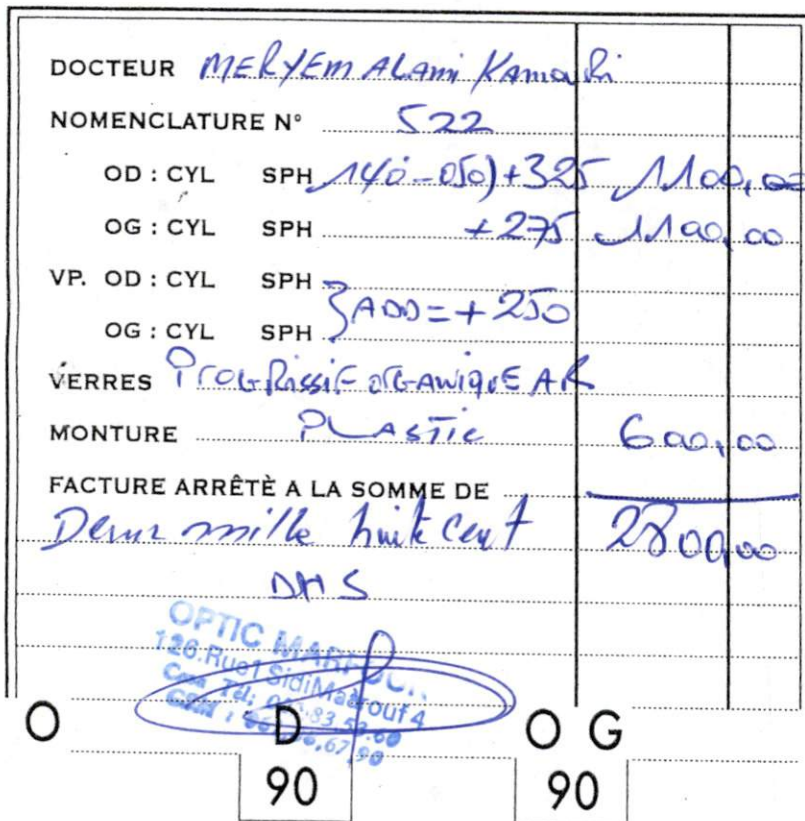 DOCTEUR MERYEM ALAMI
NOMENCLATURE N° 522
OD : CYL SPH 140-050)+325 1100,00
OG : CYL SPH +275 1100,00
VP. OD : CYL SPH
OG : CYL SPH } ADD=+250
VERRES PROGRISSIF ORGANIQUE AR
MONTURE PLASTIC 600,00
FACTURE ARRÊTÈ A LA SOMME DE
Deux mille huit cent 2800,00
DHS
OPTIC
126.Rue1 Sidi Maârouf 4
Casa Tél:
GSM :
O D O G
90 90